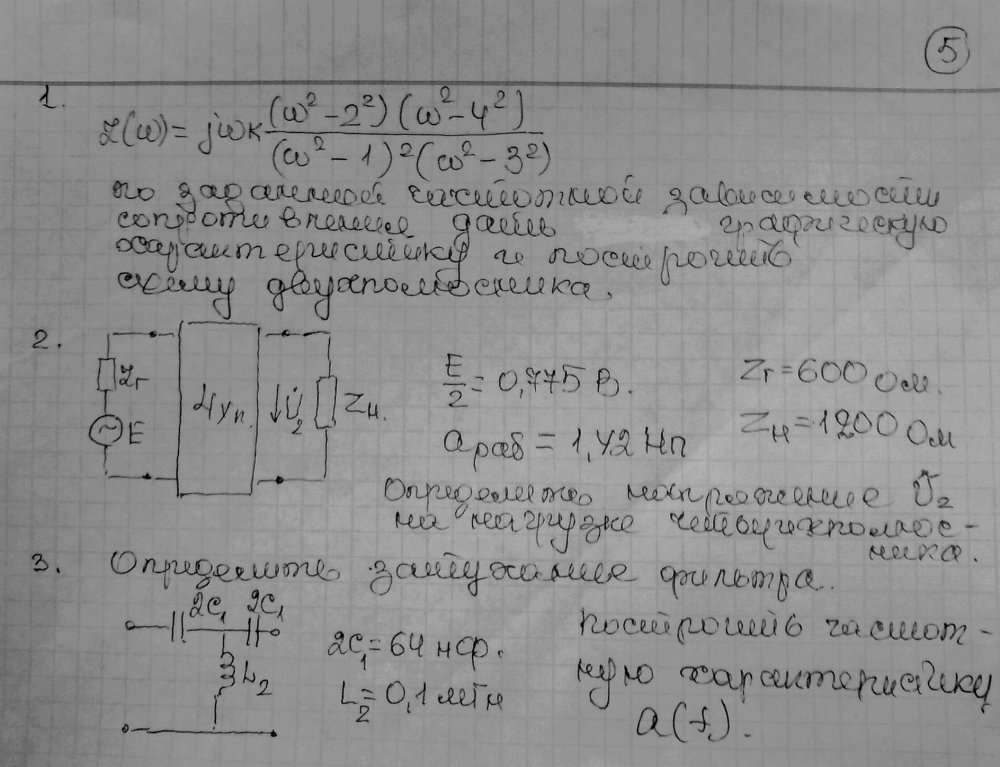 5
1.
Z(ω) = jωк (ω² - 2²)(ω² - 4²) / (ω² - 1)²(ω² - 3²)
по заданной частотной зависимости
сопротивления дать графическую
характеристику и построить
схему двухполюсника.
2.
Zг
E
4уп.
U̇₂
Zн.
E/2 = 0,775 В.
aраб = 1,42 Нп
Zг = 600 Ом.
Zн = 1200 Ом
Определить напряжение U̇₂
на нагрузке четырехполюс-
ника.
3. Определить затухание фильтра.
2C₁ 2C₁
L₂
2C₁ = 64 нф.
L₂ = 0,1 мГн
Построить частот-
ную характеристику
a(f).